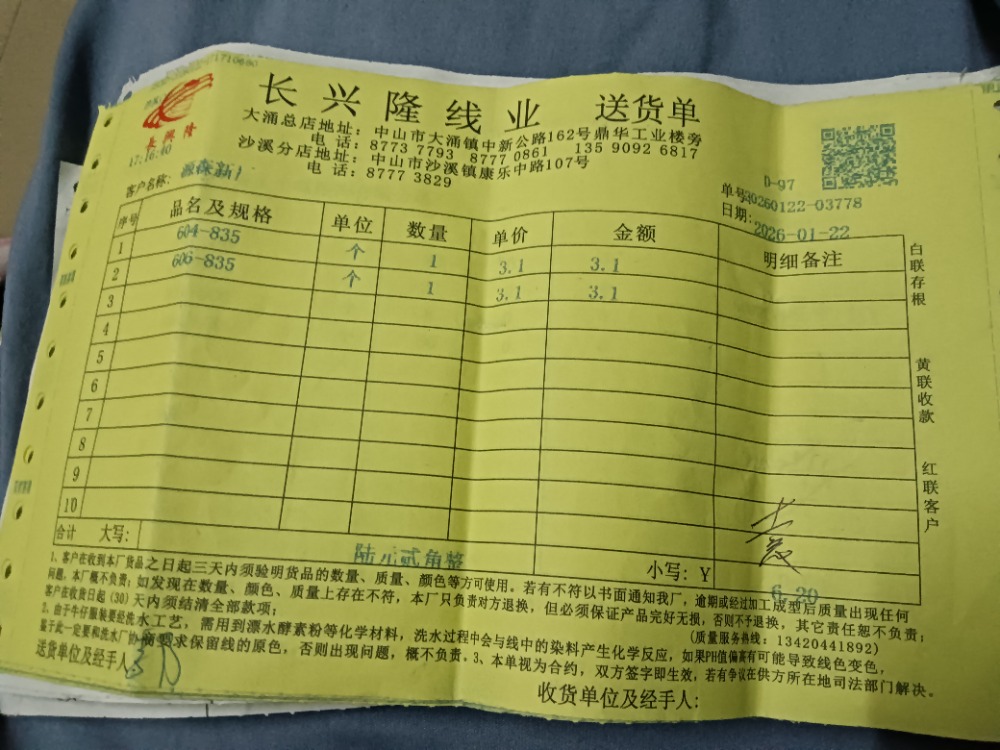 长兴隆线业 送货单
長興隆
大涌总店地址：中山市大涌镇中新公路162号鼎华工业楼旁
电 话：8773 7793 8777 0861 135 9092 6817
沙溪分店地址：中山市沙溪镇康乐中路107号
电 话：8777 3829
17:16:40
D-97
客户名称：源森新厂
单号20260122-03778
日期：2026-01-22
序号 品名及规格 单位 数量 单价 金额 明细备注
1 604-835 个 1 3.1 3.1
2 606-835 个 1 3.1 3.1
3
4
5
6
7
8
9
10
合计 大写： 陆元贰角整 小写：Y 6.20
白联存根
黄联收款
红联客户
1、客户在收到本厂货品之日起三天内须验明货品的数量、质量、颜色等方可使用。若有不符以书面通知我厂，逾期或经过加工成型后质量出现任何
问题，本厂概不负责；如发现在数量、颜色、质量上存在不符，本厂只负责对方退换，但必须保证产品完好无损，否则不予退换，其它责任恕不负责；
客户在收货日起(30)天内须结清全部款项； (质量服务热线：13420441892)
2、由于牛仔服装要经洗水工艺，需用到漂水酵素粉等化学材料，洗水过程中会与线中的染料产生化学反应，如果PH值偏高有可能导致线色变色，
鉴于此一定要和洗水厂协商要求保留线的原色，否则出现问题，概不负责。3、本单视为合约，双方签字即生效，若有争议在供方所在地司法部门解决。
送货单位及经手人：
收货单位及经手人：